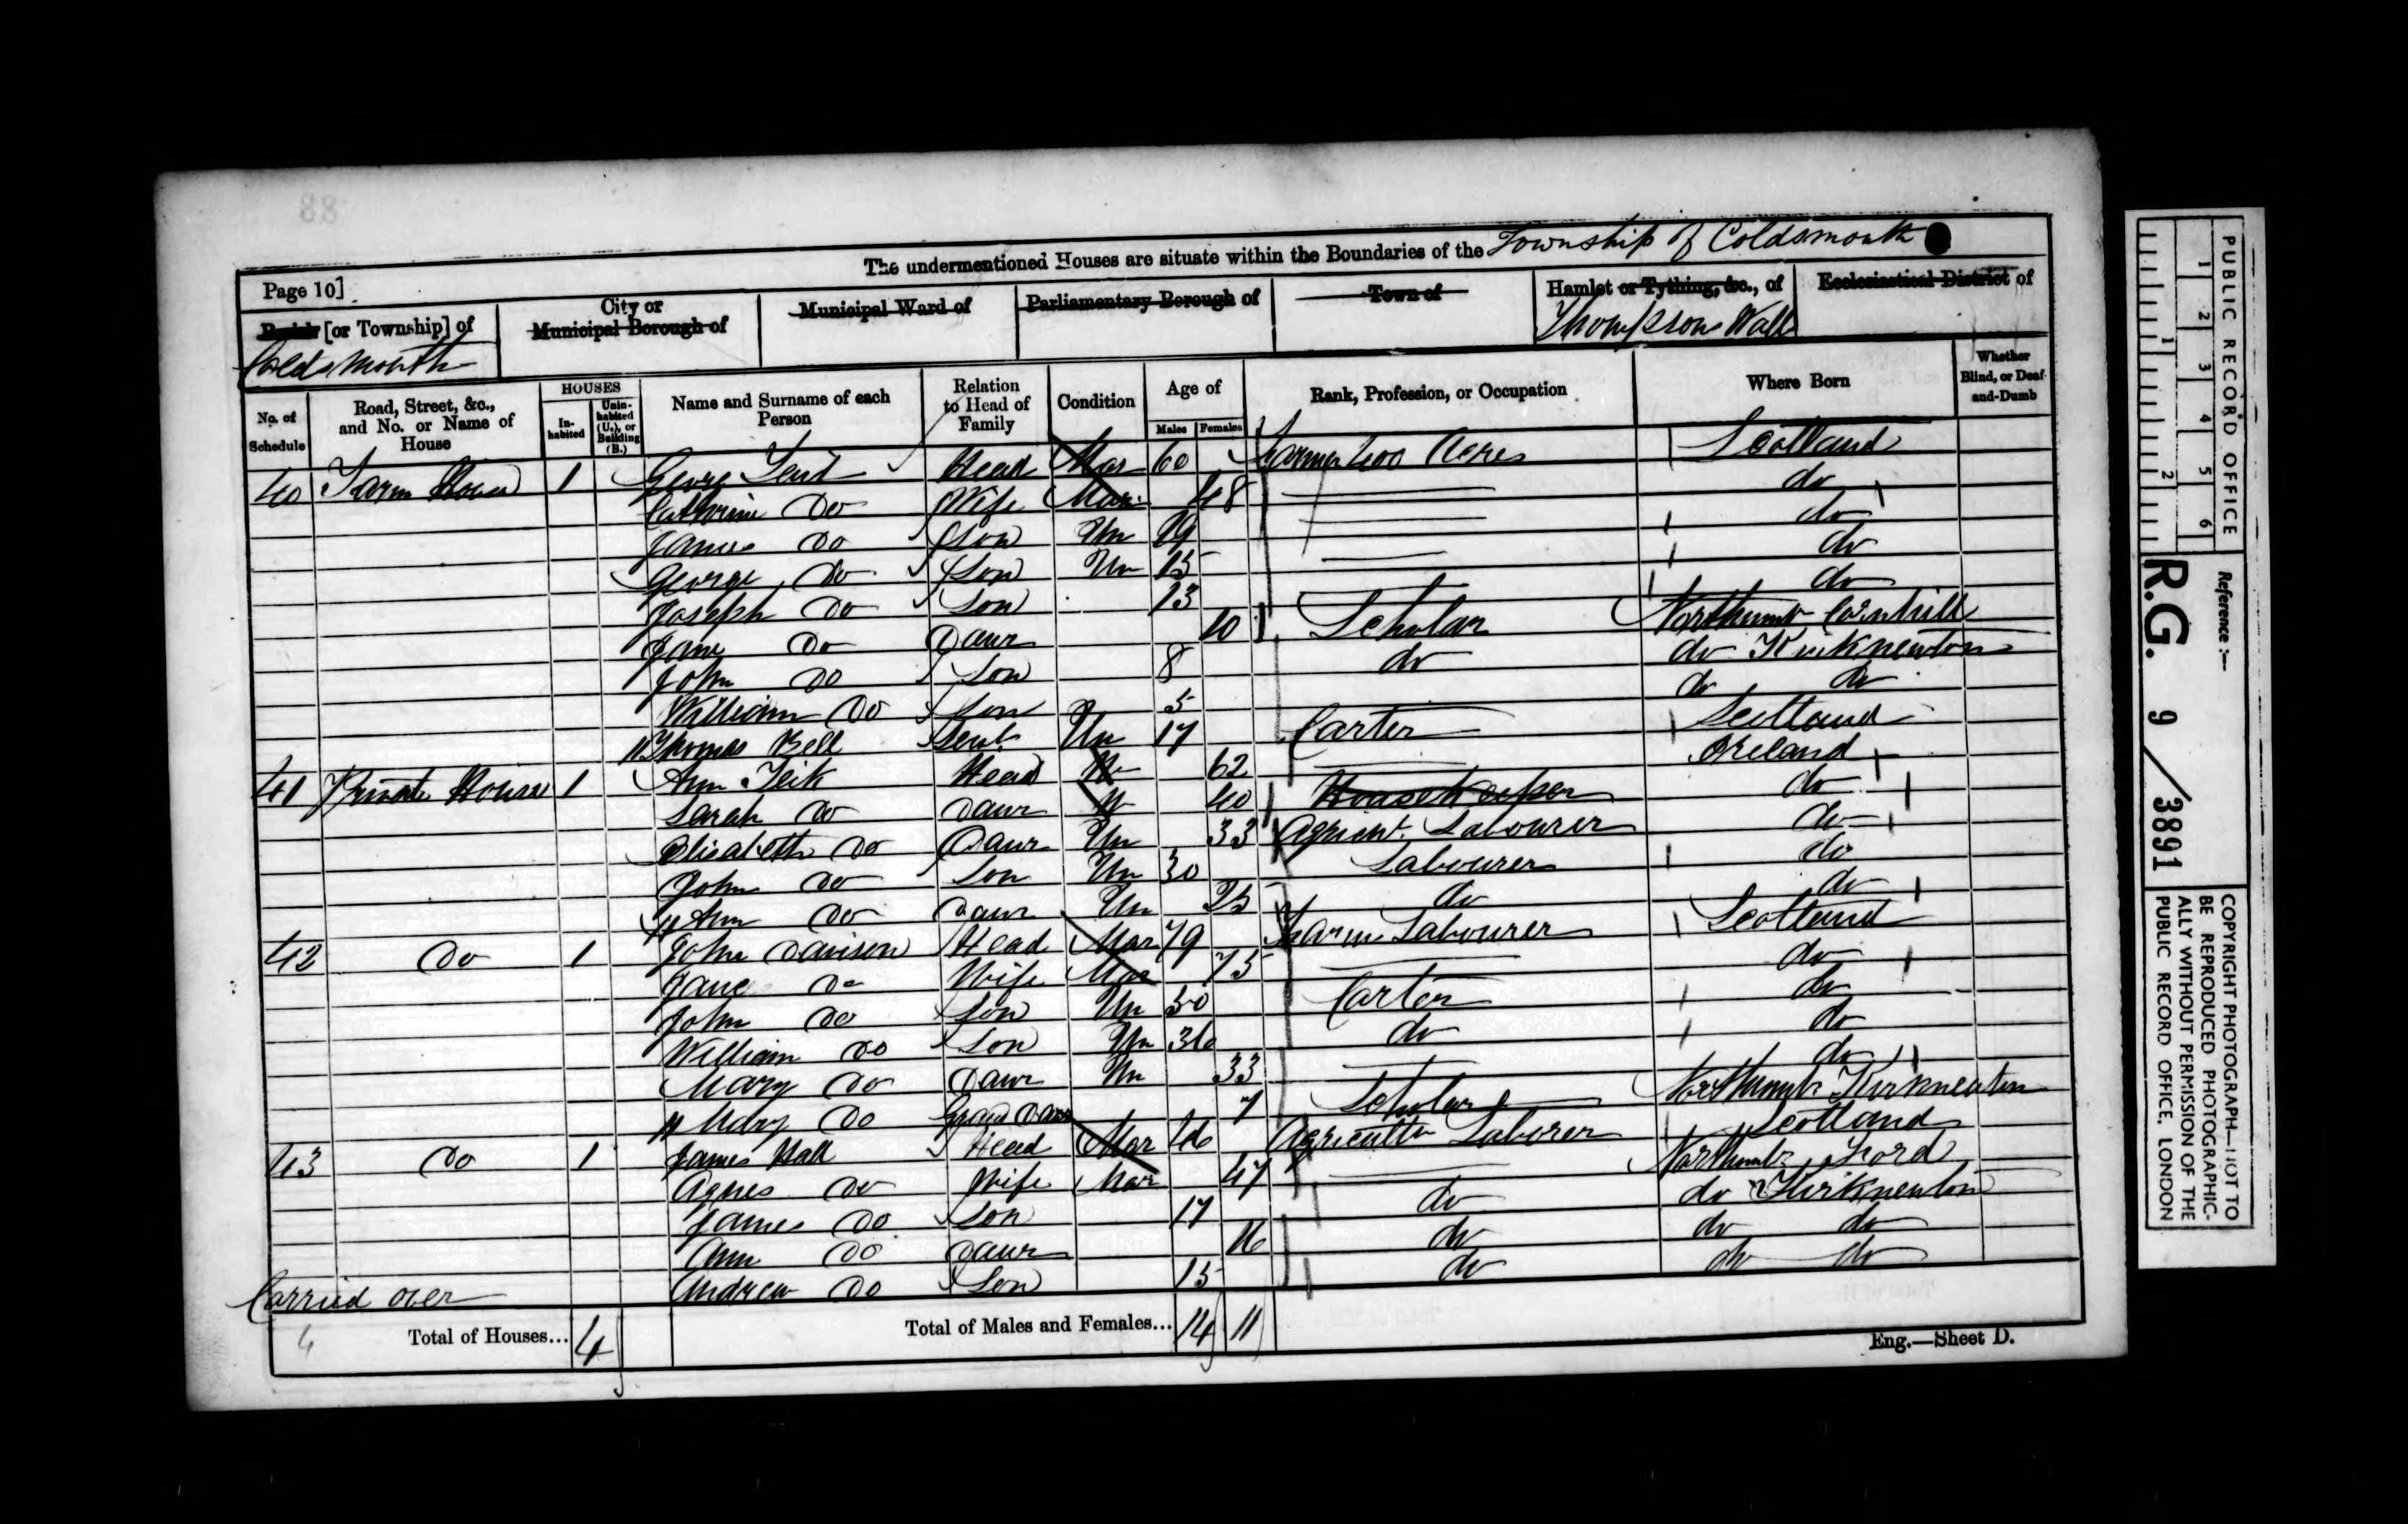 88
The undermentioned Houses are situate within the Boundaries of the Township of Coldsmouth
Page 10]
Parish [or Township] of Coldsmouth
City or Municipal Borough of
Municipal Ward of
Parliamentary Borough of
Town of
Hamlet or Tything, &c., of Thompsons Wall
Ecclesiastical District of
No. of Schedule
Road, Street, &c., and No. or Name of House
HOUSES
In-habited
Unin-habited (U.), or Building (B.)
Name and Surname of each Person
Relation to Head of Family
Condition
Age of
Males
Females
Rank, Profession, or Occupation
Where Born
Whether Blind, or Deaf-and-Dumb
40 Farm House 1 Georg Head Mar 60 Farmer 400 Acres Scotland
Catherine Do Wife Mar 48 do
James Do Son Un 19 do
George Do Son Un 15 do
Joseph Do Son 13 do
Jane Do Daur 10 Scholar Northumb Cornhill
John Do Son 8 do do Kirknewton
William Do Son 5 do do
Thomas Bell Servt Un 17 Carter Scotland
41 Private House 1 Ann Head W 62 Ireland
Sarah Do Daur W 40 Housekeeper do
Elisabeth Do Daur Un 33 Agricult. Labourer do
John Do Son Un 30 Labourer do
Ann Do Daur Un 25 do do
42 Do 1 John Davison Head Mar 79 Farm Labourer Scotland
Jane Do Wife Mar 75 do
John Do Son Un 50 Carter do
William Do Son Un 36 do do
Mary Do Daur Un 33 do
Mary Do Grand Daur 7 Scholar Northumb Kirknewton
43 Do 1 James Hall Head Mar 46 Agricultu Laborer Scotland
Agnes Do Wife Mar 47 Northumb Ford
James Do Son 17 do do Kirknewton
Ann Do Daur 16 do do do
Andrew Do Son 15 do do do
Carried over
4
Total of Houses... 4
Total of Males and Females... 14 11
Eng.—Sheet D.
PUBLIC RECORD OFFICE
1 2 3 4 5 6
1 2
Reference:—
R.G. 9/3891
COPYRIGHT PHOTOGRAPH—NOT TO
BE REPRODUCED PHOTOGRAPHIC-
ALLY WITHOUT PERMISSION OF THE
PUBLIC RECORD OFFICE, LONDON